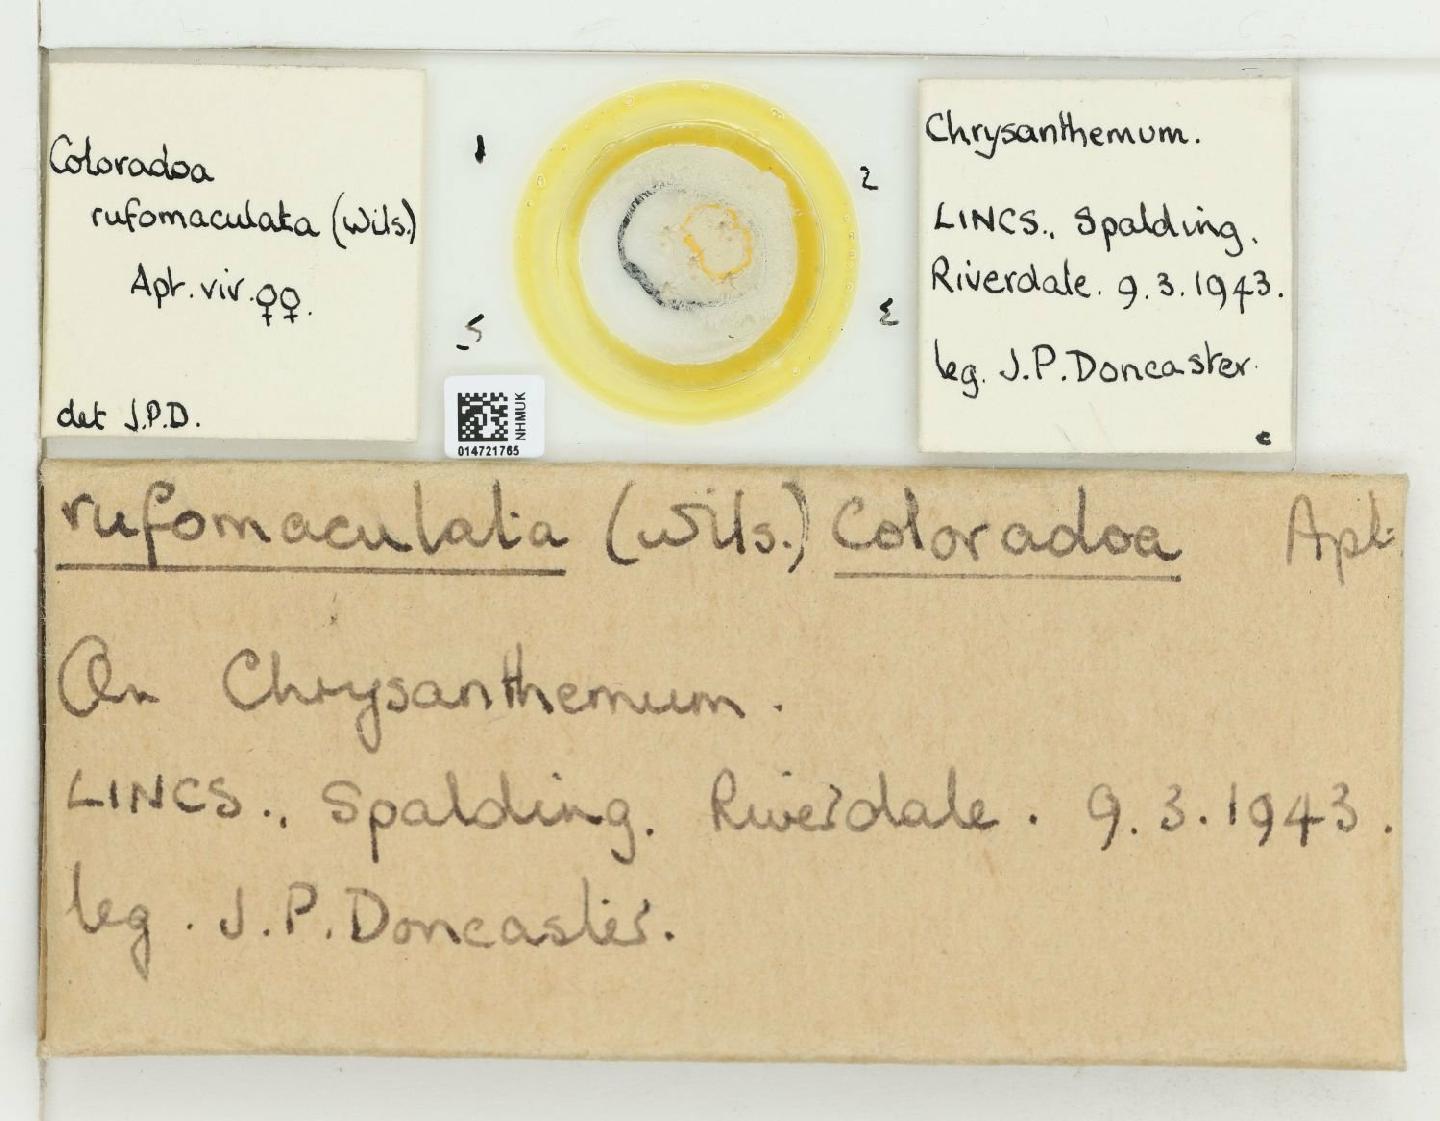 Coloradoa
rufomaculata (Wils.)
Apt. vir. ♀♀.
det J.P.D.
1
2
3
5
NHMUK
014721765
Chrysanthemum.
LINCS., Spalding.
Riverdale. 9.3.1943.
leg. J.P.Doncaster.
c
rufomaculata (Wils.) Coloradoa Apt.
On Chrysanthemum.
LINCS., Spalding. Riverdale. 9.3.1943.
leg. J.P.Doncaster.